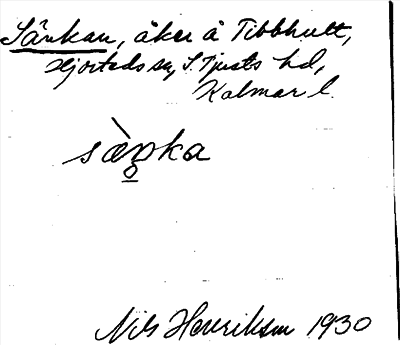 Särkan, åker å Tibbhult,
Hjorteds sn, S. Tjusts hd,
Kalmar l.
sæ̀ꞃ̥ka
Nils Henriksson 1930